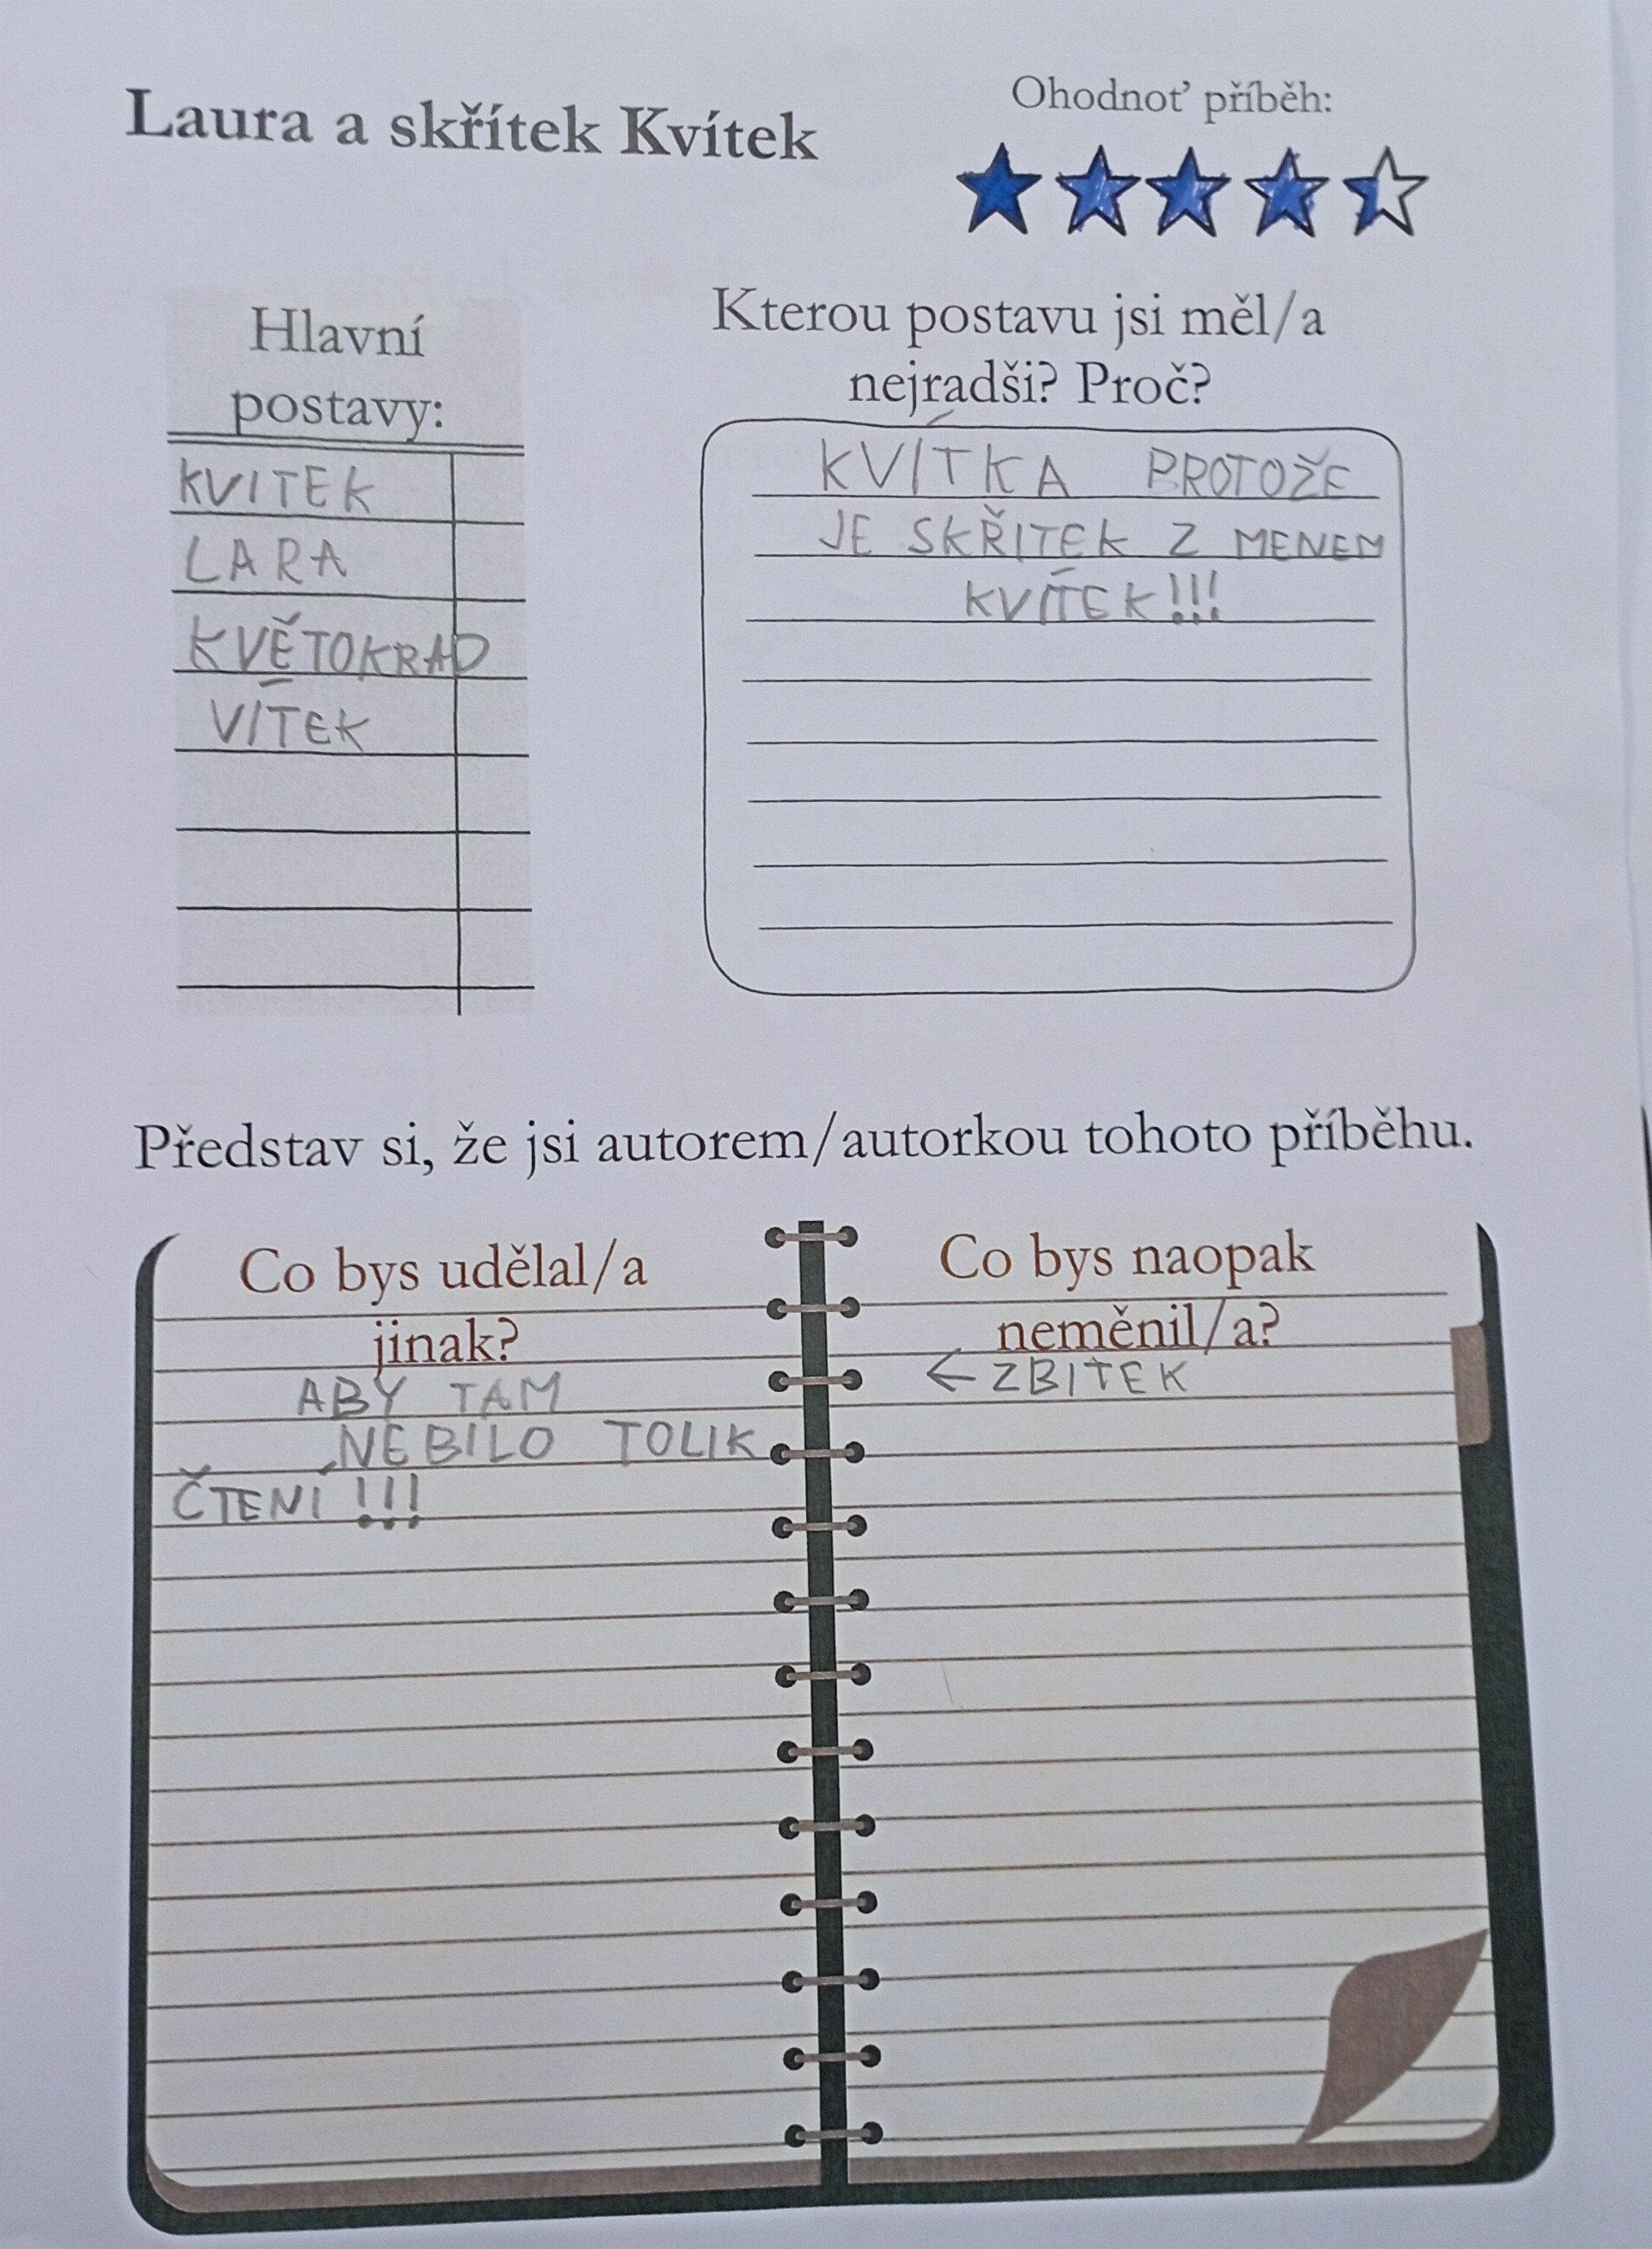 Laura a skřítek Kvítek
Ohodnoť příběh:
Hlavní
postavy:
KVITEK
LARA
KVĚTOKRAD
VÍTEK
Kterou postavu jsi měl/a
nejradši? Proč?
KVÍTKA PROTOŽE
JE SKŘITEK Z MENEM
KVÍTEK!!!
Představ si, že jsi autorem/autorkou tohoto příběhu.
Co bys udělal/a
jinak?
ABY TAM
NEBILO TOLIK
ČTENÍ!!!
Co bys naopak
neměnil/a?
← ZBITEK